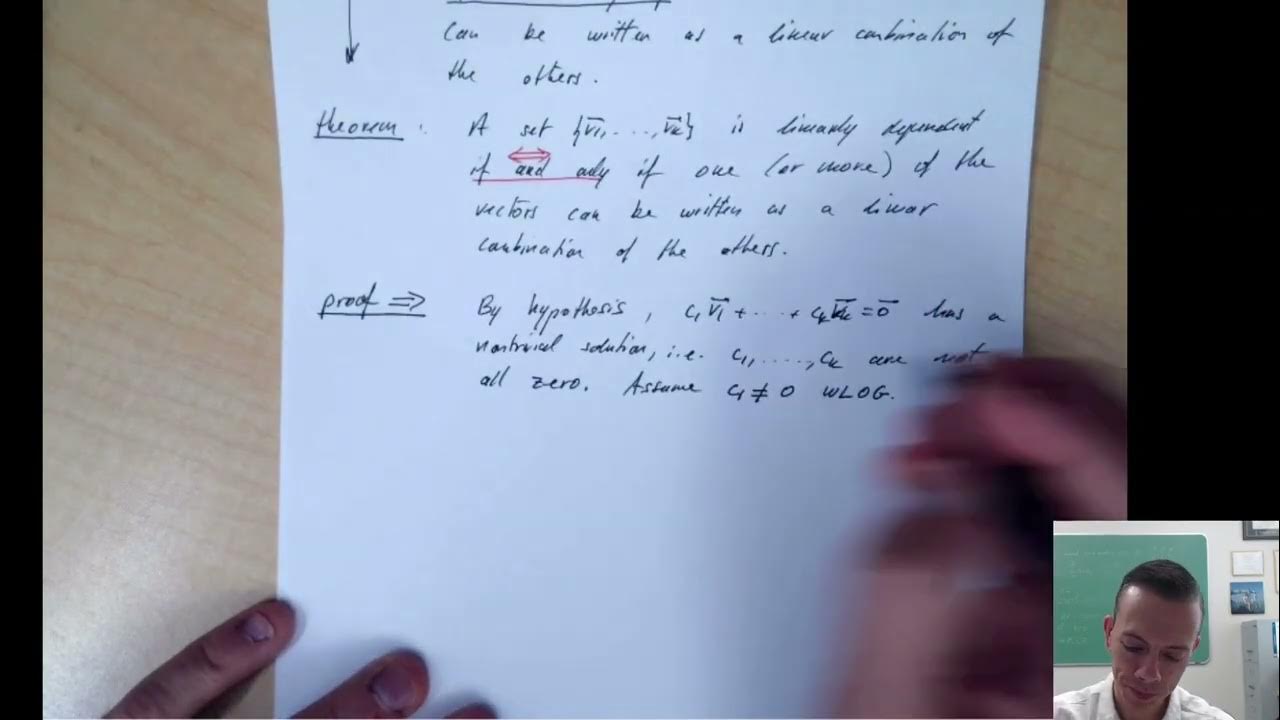 can be written as a linear combination of
the others.
theorem : A set {v⃗1, ..., v⃗k} is linearly dependent
⟺
if and only if one (or more) of the
vectors can be written as a linear
combination of the others.
proof ⟹ By hypothesis, c1 v⃗1 + ... + ck v⃗k = 0⃗ has a
nontrivial solution, i.e. c1, ....., ck are not
all zero. Assume c1 ≠ 0 WLOG.